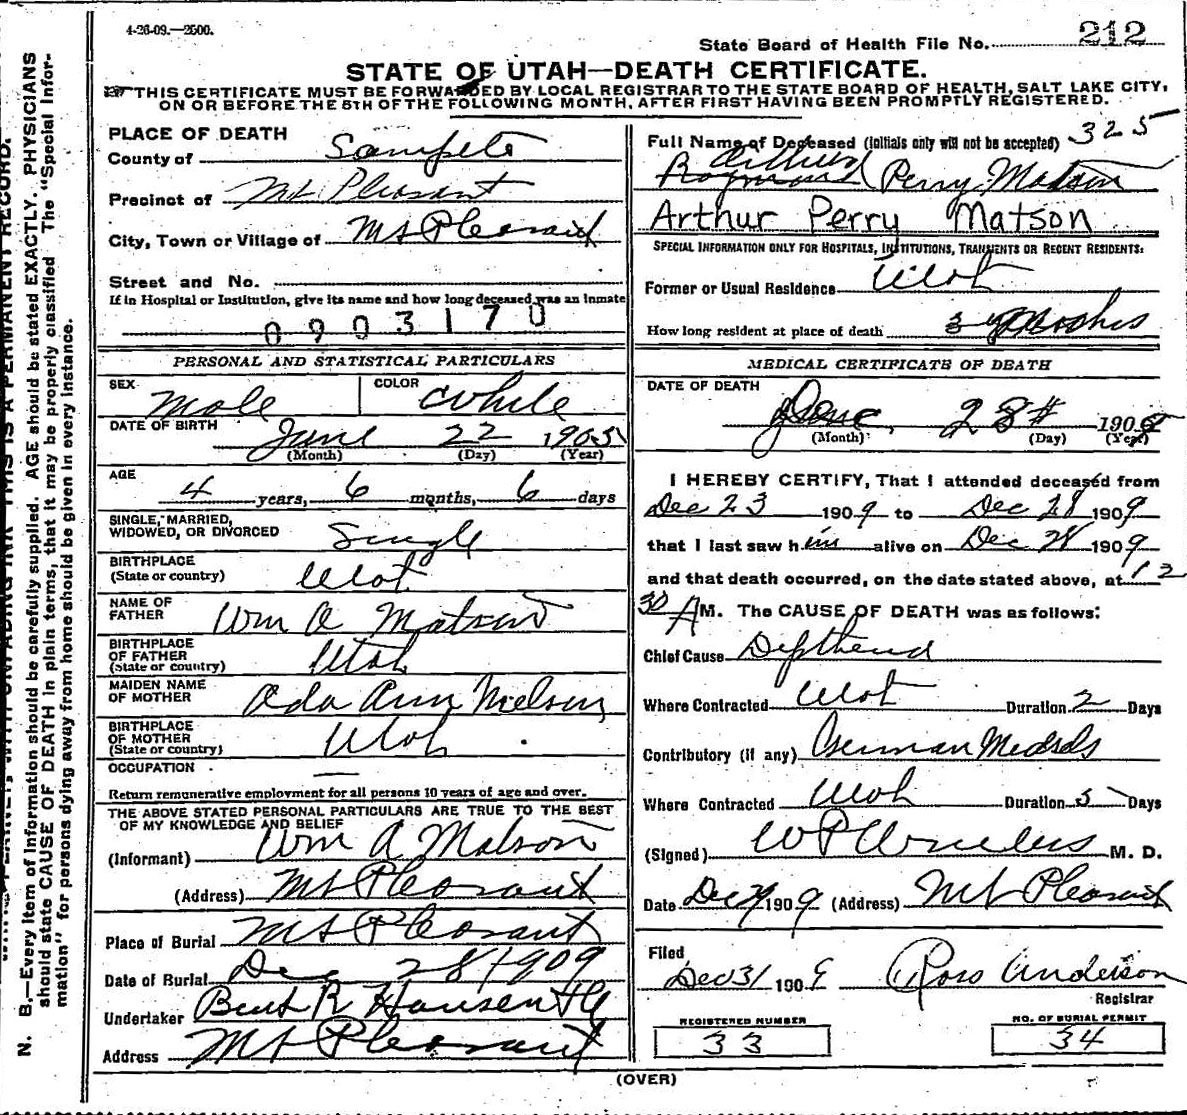 4-26-09.—2500.
212
State Board of Health File No.
STATE OF UTAH—DEATH CERTIFICATE.
THIS CERTIFICATE MUST BE FORWARDED BY LOCAL REGISTRAR TO THE STATE BOARD OF HEALTH, SALT LAKE CITY,
ON OR BEFORE THE 5TH OF THE FOLLOWING MONTH, AFTER FIRST HAVING BEEN PROMPTLY REGISTERED.
PLACE OF DEATH
County of Sanpete
Precinct of Mt. Pleasant
City, Town or Village of Mt Pleasant
Street and No.
If in Hospital or Institution, give its name and how long deceased was an inmate
0903170
PERSONAL AND STATISTICAL PARTICULARS
SEX Male COLOR White
DATE OF BIRTH June 22 1905
(Month) (Day) (Year)
AGE
4 years, 6 months, 6 days
SINGLE, MARRIED,
WIDOWED, OR DIVORCED Single
BIRTHPLACE
(State or country) Utah
NAME OF
FATHER Wm A Matson
BIRTHPLACE
OF FATHER
(State or country) Utah
MAIDEN NAME
OF MOTHER Ada Ann Nielson
BIRTHPLACE
OF MOTHER
(State or country) Utah
OCCUPATION
Return remunerative employment for all persons 10 years of age and over.
THE ABOVE STATED PERSONAL PARTICULARS ARE TRUE TO THE BEST
OF MY KNOWLEDGE AND BELIEF
(Informant) Wm A Matson
(Address) Mt Pleasant
Place of Burial Mt Pleasant
Date of Burial Dec 28 1909
Undertaker Bent R Hansen
Address Mt Pleasant
325
Full Name of Deceased (Initials only will not be accepted)
Arthur
Raymond Perry Matson
Arthur Perry Matson
SPECIAL INFORMATION ONLY FOR HOSPITALS, INSTITUTIONS, TRANSIENTS OR RECENT RESIDENTS:
Former or Usual Residence Utah
How long resident at place of death
MEDICAL CERTIFICATE OF DEATH
DATE OF DEATH
28 190
(Month) (Day) (Year)
I HEREBY CERTIFY, That I attended deceased from
Dec 23 1909 to Dec 28 1909
that I last saw him alive on Dec 28 1909
and that death occurred, on the date stated above, at 12
30 A M. The CAUSE OF DEATH was as follows:
Chief Cause Diptheria
Where Contracted Utah Duration 2 Days
Contributory (if any) German Measels
Where Contracted Utah Duration 5 Days
(Signed) M. D.
Date Dec 1909 (Address) Mt Pleasant
Filed
Dec 31 1909 Ross Anderson
Registrar
REGISTERED NUMBER
33
NO. OF BURIAL PERMIT
34
(OVER)
N. B.—Every item of information should be carefully supplied. AGE should be stated EXACTLY. PHYSICIANS
should state CAUSE OF DEATH in plain terms, that it may be properly classified. The "Special Infor-
mation" for persons dying away from home should be given in every instance.